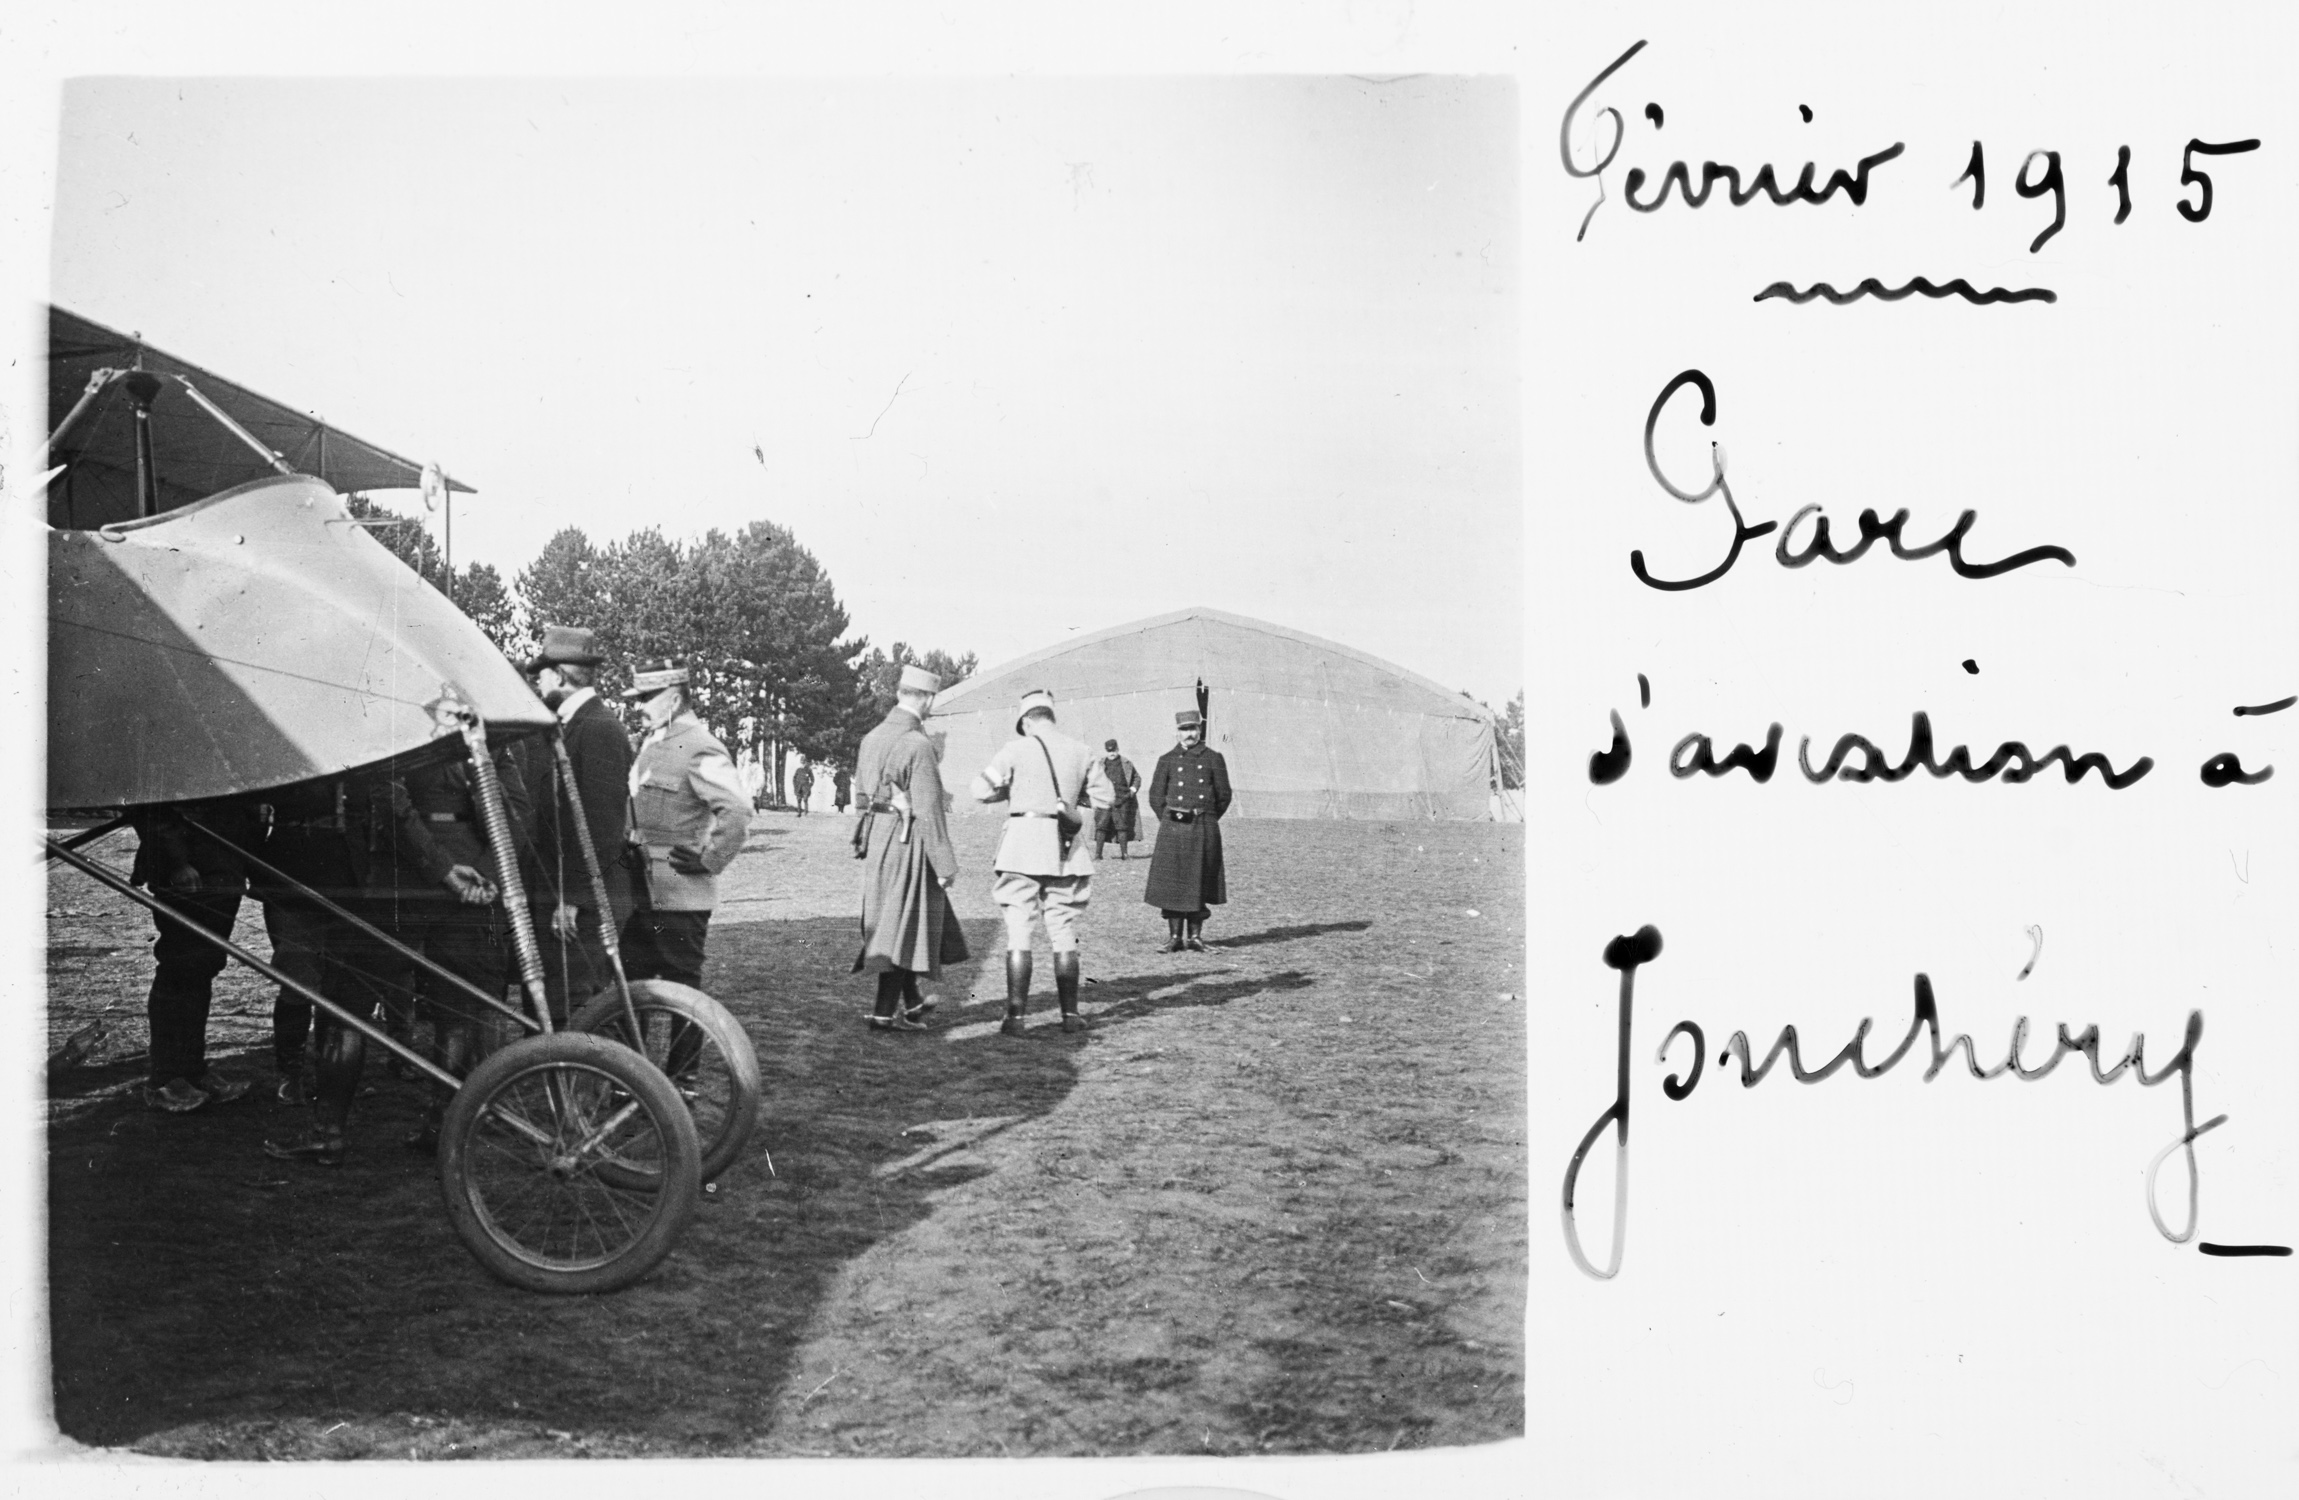 Février 1915
Gare
d'aviation à
Jonchéry